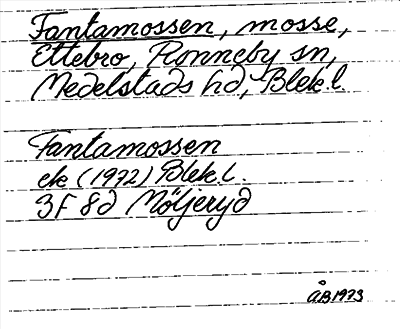 Fantamossen, mosse,
Ettebro, Ronneby sn,
Medelstads hd, Blek.l.
Fantamossen
ek (1972) Blek.l.
3F 8d Möljeryd
ÅB 1973